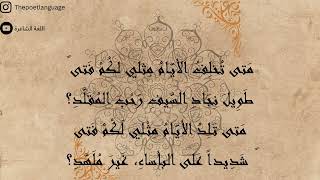 Thepoetlanguage
اللغة الشاعرة
مَتى تُخلِفُ الأَيّامُ مِثلي لَكُم فَتىً
طَويلَ نِجادِ السَّيفِ رَحبَ المُقَلَّدِ؟
مَتى تَلِدُ الأَيّامُ مِثلي لَكُم فَتىً
شَديداً عَلى البَأساءِ، غَيرَ مُلَهَّدِ؟